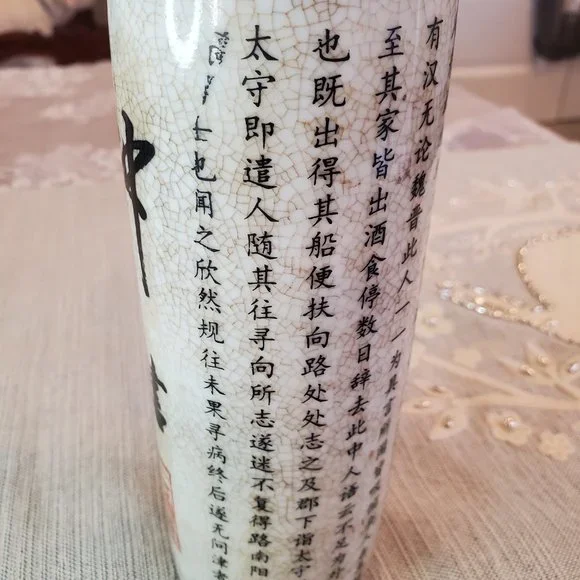 有汉无论魏晋此人一一为具言所闻皆叹惋
至其家皆出酒食停数日辞去此中人语云不足为
也既出得其船便扶向路处处志之及郡下诣太守
太守即遣人随其往寻向所志遂迷不复得路南阳
士也闻之欣然规往未果寻病终后遂无问津者